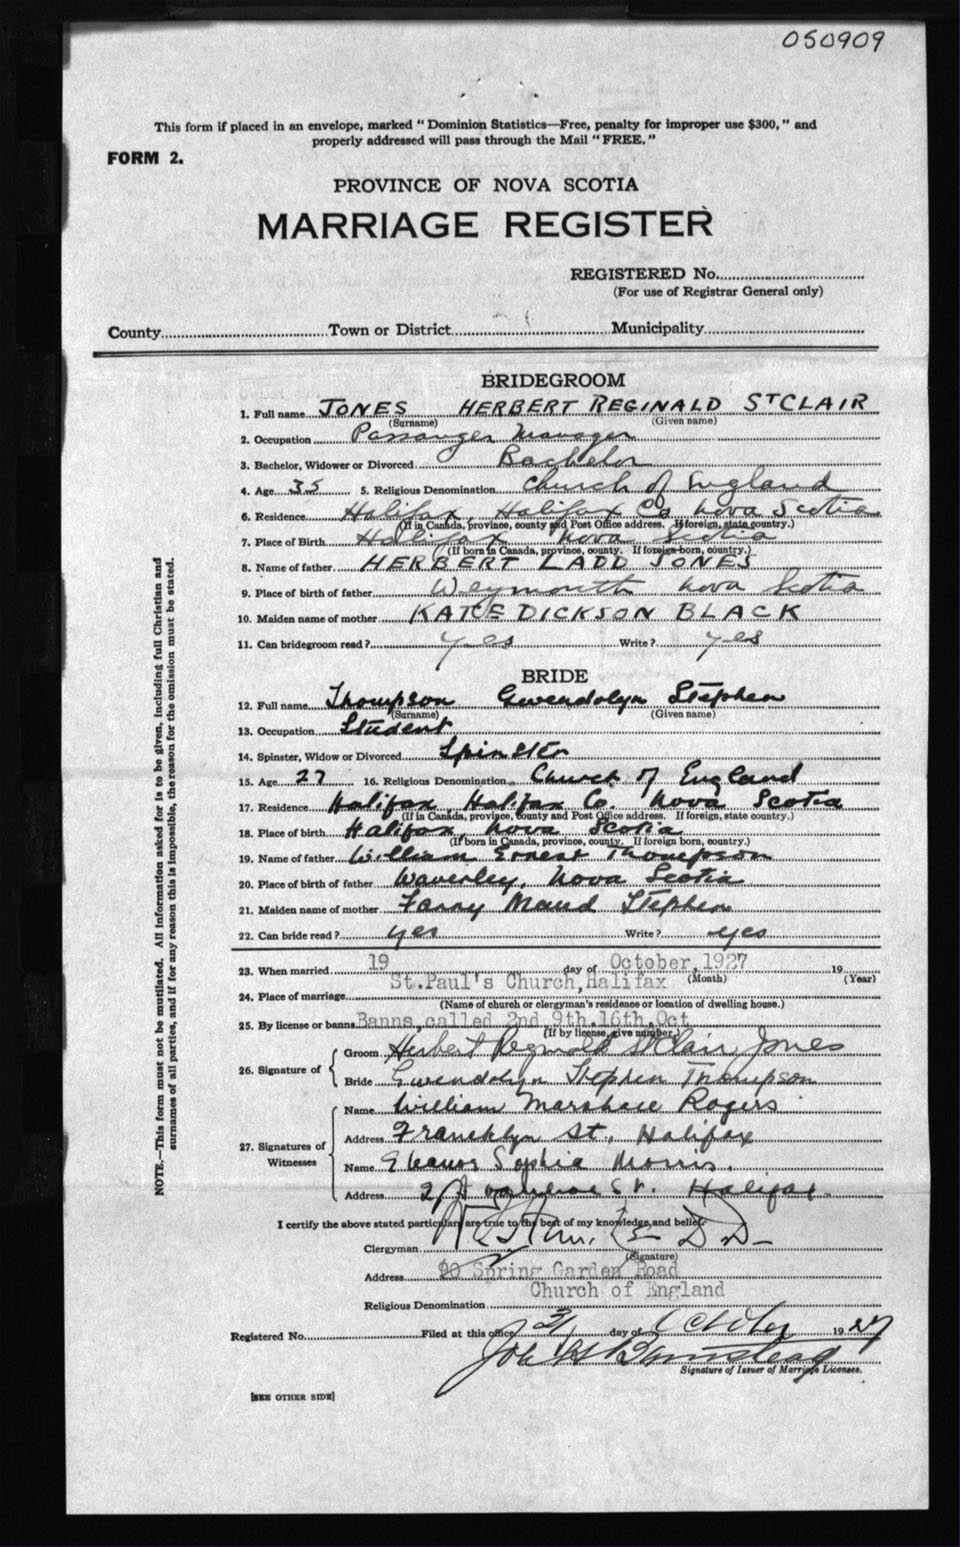 050909
This form if placed in an envelope, marked "Dominion Statistics—Free, penalty for improper use $300," and
properly addressed will pass through the Mail "FREE."
FORM 2.
PROVINCE OF NOVA SCOTIA
MARRIAGE REGISTER
REGISTERED No.
(For use of Registrar General only)
County Town or District Municipality
BRIDEGROOM
1. Full name JONES HERBERT REGINALD ST CLAIR
(Surname) (Given name)
2. Occupation Passenger Manager
3. Bachelor, Widower or Divorced Bachelor
4. Age 35 5. Religious Denomination Church of England
6. Residence Halifax, Halifax Co Nova Scotia
(If in Canada, province, county and Post Office address. If foreign, state country.)
7. Place of Birth Halifax Nova Scotia
(If born in Canada, province, county. If foreign-born, country.)
8. Name of father HERBERT LADD JONES
9. Place of birth of father Weymouth Nova Scotia
10. Maiden name of mother KATE DICKSON BLACK
11. Can bridegroom read? yes Write? yes
BRIDE
12. Full name Thompson Gwendolyn Stephen
(Surname) (Given name)
13. Occupation Student
14. Spinster, Widow or Divorced Spinster
15. Age 27 16. Religious Denomination Church of England
17. Residence Halifax, Halifax Co. Nova Scotia
(If in Canada, province, county and Post Office address. If foreign, state country.)
18. Place of birth Halifax, Nova Scotia
(If born in Canada, province, county. If foreign born, country.)
19. Name of father William Ernest Thompson
20. Place of birth of father Waverley, Nova Scotia
21. Maiden name of mother Fanny Maud Stephen
22. Can bride read? yes Write? yes
23. When married 19 day of October, 1927 19
(Month) (Year)
24. Place of marriage St. Paul's Church, Halifax
(Name of church or clergyman's residence or location of dwelling house.)
25. By license or banns Banns, called 2nd 9th. 16th. Oct
(If by license, give number.)
26. Signature of
Groom Herbert Reginald St Clair Jones
Bride Gwendolyn Stephen Thompson
27. Signatures of Witnesses
Name William Marshall Rogers
Address Francklyn St. Halifax
Name Eleanor Sophia Morris.
Address St. Halifax.
I certify the above stated particulars are true to the best of my knowledge and belief.
Clergyman D.D.
(Signature)
Address 90 Spring Garden Road
Religious Denomination Church of England
Registered No. Filed at this office 31 day of October 1927
Signature of Issuer of Marriage Licenses.
[SEE OTHER SIDE]
NOTE.—This form must not be mutilated. All information asked for is to be given, including full Christian and
surnames of all parties, and if for any reason this is impossible, the reason for the omission must be stated.